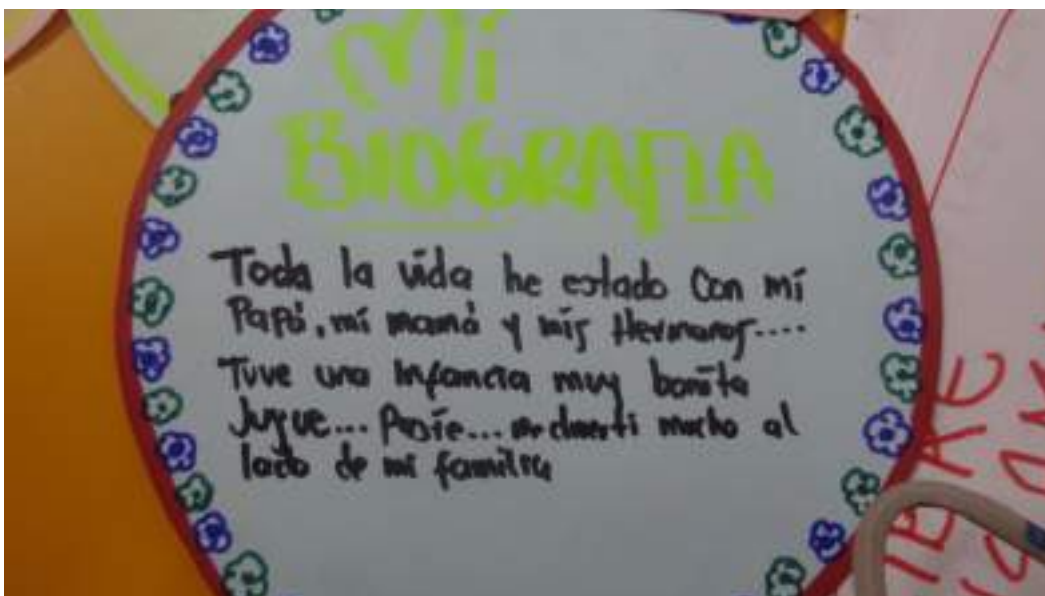 Mi
BIOGRAFIA
Toda la vida he estado Con mí
Papá, mí mamá y mis Hermanos....
Tuve una infancia muy bonita
Jugue... Pasíe... me divertí mucho al
lado de mi familia